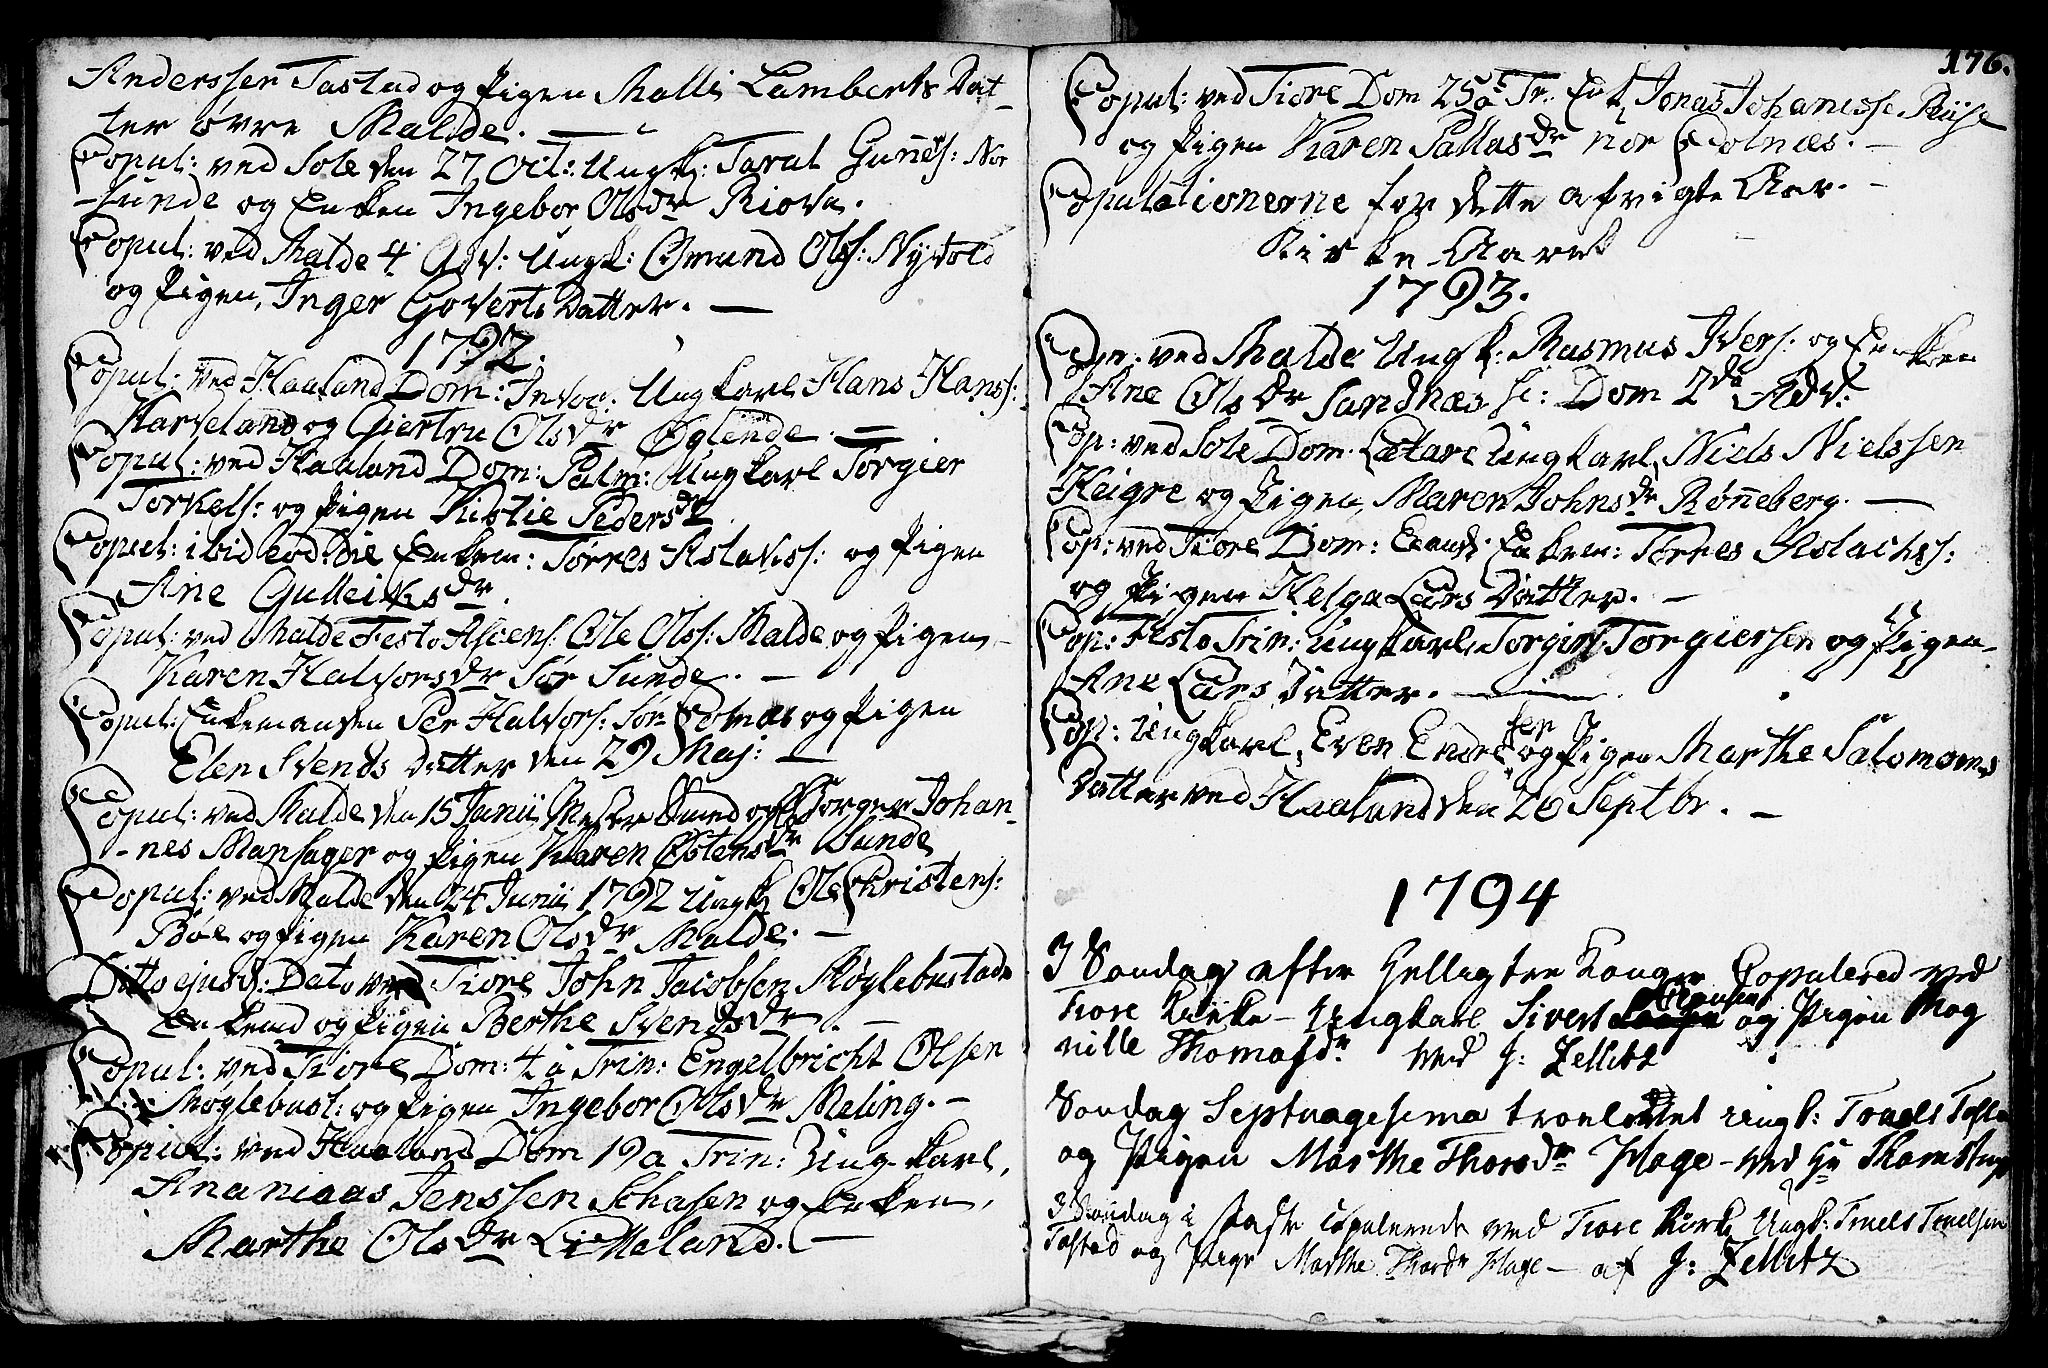 Anderssen Tastad og Pigen Malli Lamberts Dat-
ter øvre Malde. —
Copul: ved Sole den 27 Oct: Ungk: Tarul Guñers: Nor
-sunde og Enken Ingebor Olsdr Riova.
Copul: ved Malde 4 Adv: Ungk: Omund Ols: Nyvold
og Pigen, Inger Goverts Datter. —
1792.
Copul: ved Haaland Dom: Invoc: Ungkarl Hans Hanss:
Harveland og Giertru Olsdr Øglende. —
Copul: ved Haaland Dom: Palm: Ungkarl Torgier
Torkels: og Pigen Kistie Pedersdr
Copul: ibid eod: die Enkem: Tørres Aslakss: og Pigen
Ane Gulleiksdr.
Copul: ved Malde Festo Ascens: Ole Olss: Malde og Pigen —
Karen Halvorsdr Sør Sunde. —
Copul: Enkemanden Per Halvors: Sør Colnæs og Pigen
Elen Svends Datter den 29 Maj: —
Copul: ved Malde den 15 Junij Mester Smed og Borger Johan-
-nes Mansager og Pigen Karen Østensdr Sunde
Copul: ved Malde den 24 Junii 1792 Ungk Ole Christens:
Bøe og Pigen Karen Olsdr Malde. —
Ditto ejusd: Dato ved Tiore John Jacobsen Møglebustade
Enkemd og Pigen Berthe Svendsdr. —
Copul: ved Tiore Dom: 4 a Trin: Engelbricht Olsen
Møglebust: og Pigen Ingebor Olsdr Meling. —
Copul: ved Haaland Dom 19 a Trin: Ungkarl,
Ananiaas Jenssen Schasen og Enken,
Marthe Olsdr Litleland. —
176.
Copul: ved Tiore Dom 25 a Tr: Enk Jonas Johanesse Riise
og Pigen Karen Pallasdr nor Colnæs. —
Copulationerne for dette afvigte Aar. —
Kirke-Aaret
1793.
Cop: ved Malde Ungk: Rasmus Ivers: og Enken
Ane Olsdr Sandnæs sc: Dom 2da Adv:
Cop: ved Sole Dom. Lætare Ungkarl Niels Nielssen
Heigre og Pigen, Maren Johnsdr Røñeberg. —
Cop: ved Tiore Dom: Eaud: Enkem: Tørres Aslachs:
og Pigen Helga Lars Datter. —
Cop: Festo Trin: Ungkarl Torgier Torgiersen og Pigen
Ane Lars Datter. —
Cop: Ungkarl, Even Endre sen og Pigen Marthe Salomons
Datter ved Haaland den 26 Septbr. —
1794
3 Søndag efter Hellig tre Konger Copulered ved
Tiore Kirke — Ungkarl Sivert Hansen og Pigen Mag
nille Thomasdr ved J: Zellitz
Søndag Septuagesima trolovet Ungk: Troels Tosta
og Pigen Marthe Thorsdr Hage — ved Hr Thomstrup
3 Søndag i Faste Copulerede ved Tiore Kirke Ungk: Truels Truelsen
Tostad og Pige Marthe Thordr Hage — af J: Zellitz